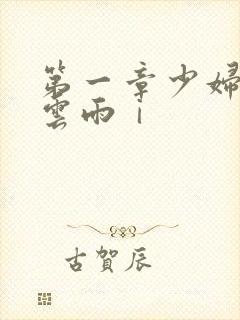 第一章少婦
雲雨｜
古賀辰